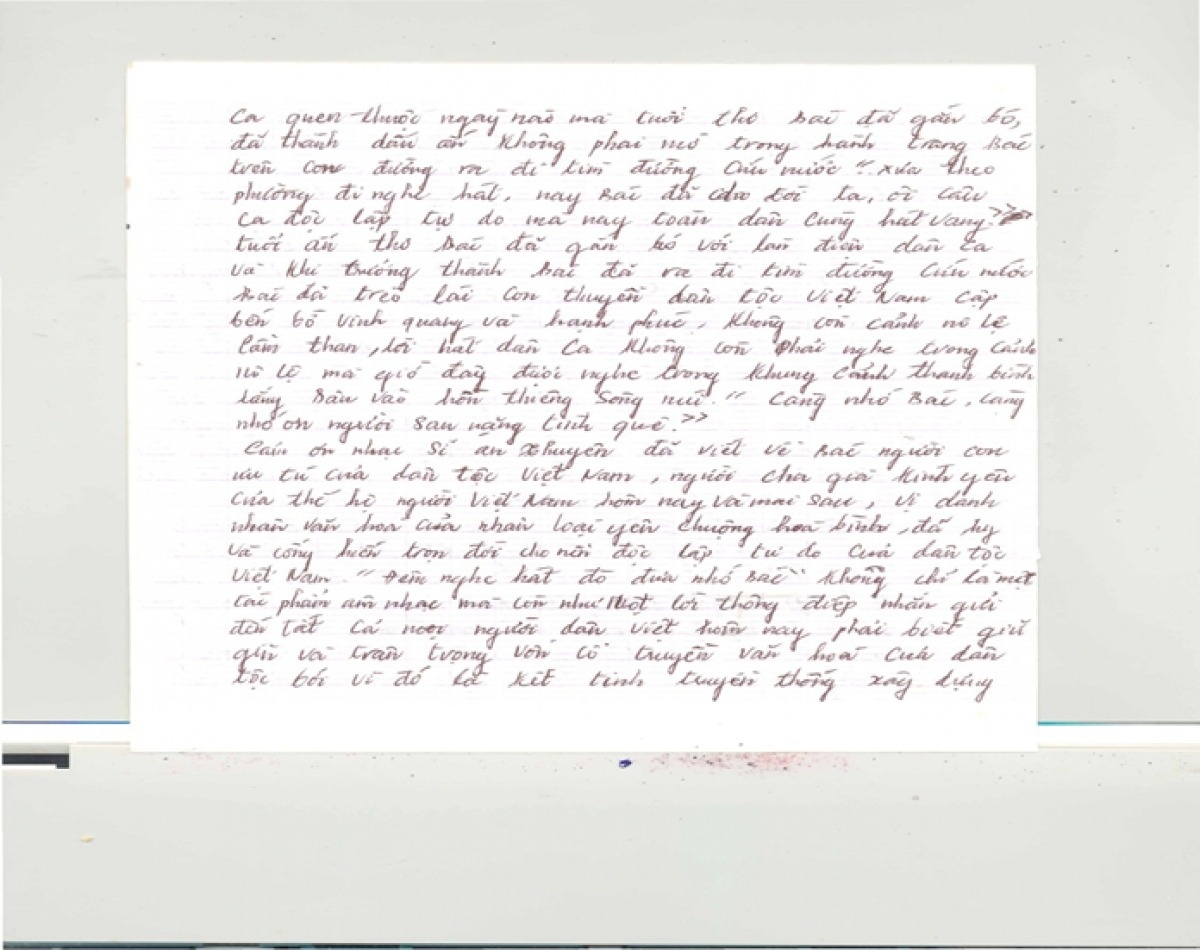 Ca quen thuộc ngày nào mà tuổi thơ Bác đã gắn bó,
đã thành dấu ấn không phai mờ trong hành trang Bác
trên con đường ra đi tìm đường cứu nước " xưa theo
phường đi nghe hát, nay Bác đã cho đời ta, ơi câu
ca độc lập tự do mà nay toàn dân cùng hát vang >>
tuổi ấu thơ Bác đã gắn bó với làn điệu dân ca
và khi trưởng thành Bác đã ra đi tìm đường cứu nước
Bác đã trèo lái con thuyền dân tộc Việt Nam cập
bến bờ vinh quang và hạnh phúc, không còn cảnh nô lệ
lầm than, lời hát dân ca không còn phải nghe trong cảnh
nô lệ mà giờ đây được nghe trong khung cảnh thanh bình
lắng sâu vào hồn thiêng sông núi. " Càng nhớ Bác, càng
nhớ ơn người sau nặng tình quê. >>
Cám ơn nhạc sĩ An Thuyên đã viết về Bác người con
ưu tú của dân tộc Việt Nam, người cha già kính yêu
của thế hệ người Việt Nam hôm nay và mai sau, vị danh
nhân văn hoá của nhân loại yêu chuộng hoà bình, đã hy
và cống hiến trọn đời cho nền độc lập tự do của dân tộc
Việt Nam. " Đêm nghe hát đò đưa nhớ Bác " không chỉ là một
tác phẩm âm nhạc mà còn như một lời thông điệp nhắn gửi
đến tất cả mọi người dân Việt hôm nay phải biết giữ
gìn và trân trọng vốn cổ truyền văn hoá của dân
tộc bởi vì đó là kết tinh truyền thống xây dựng